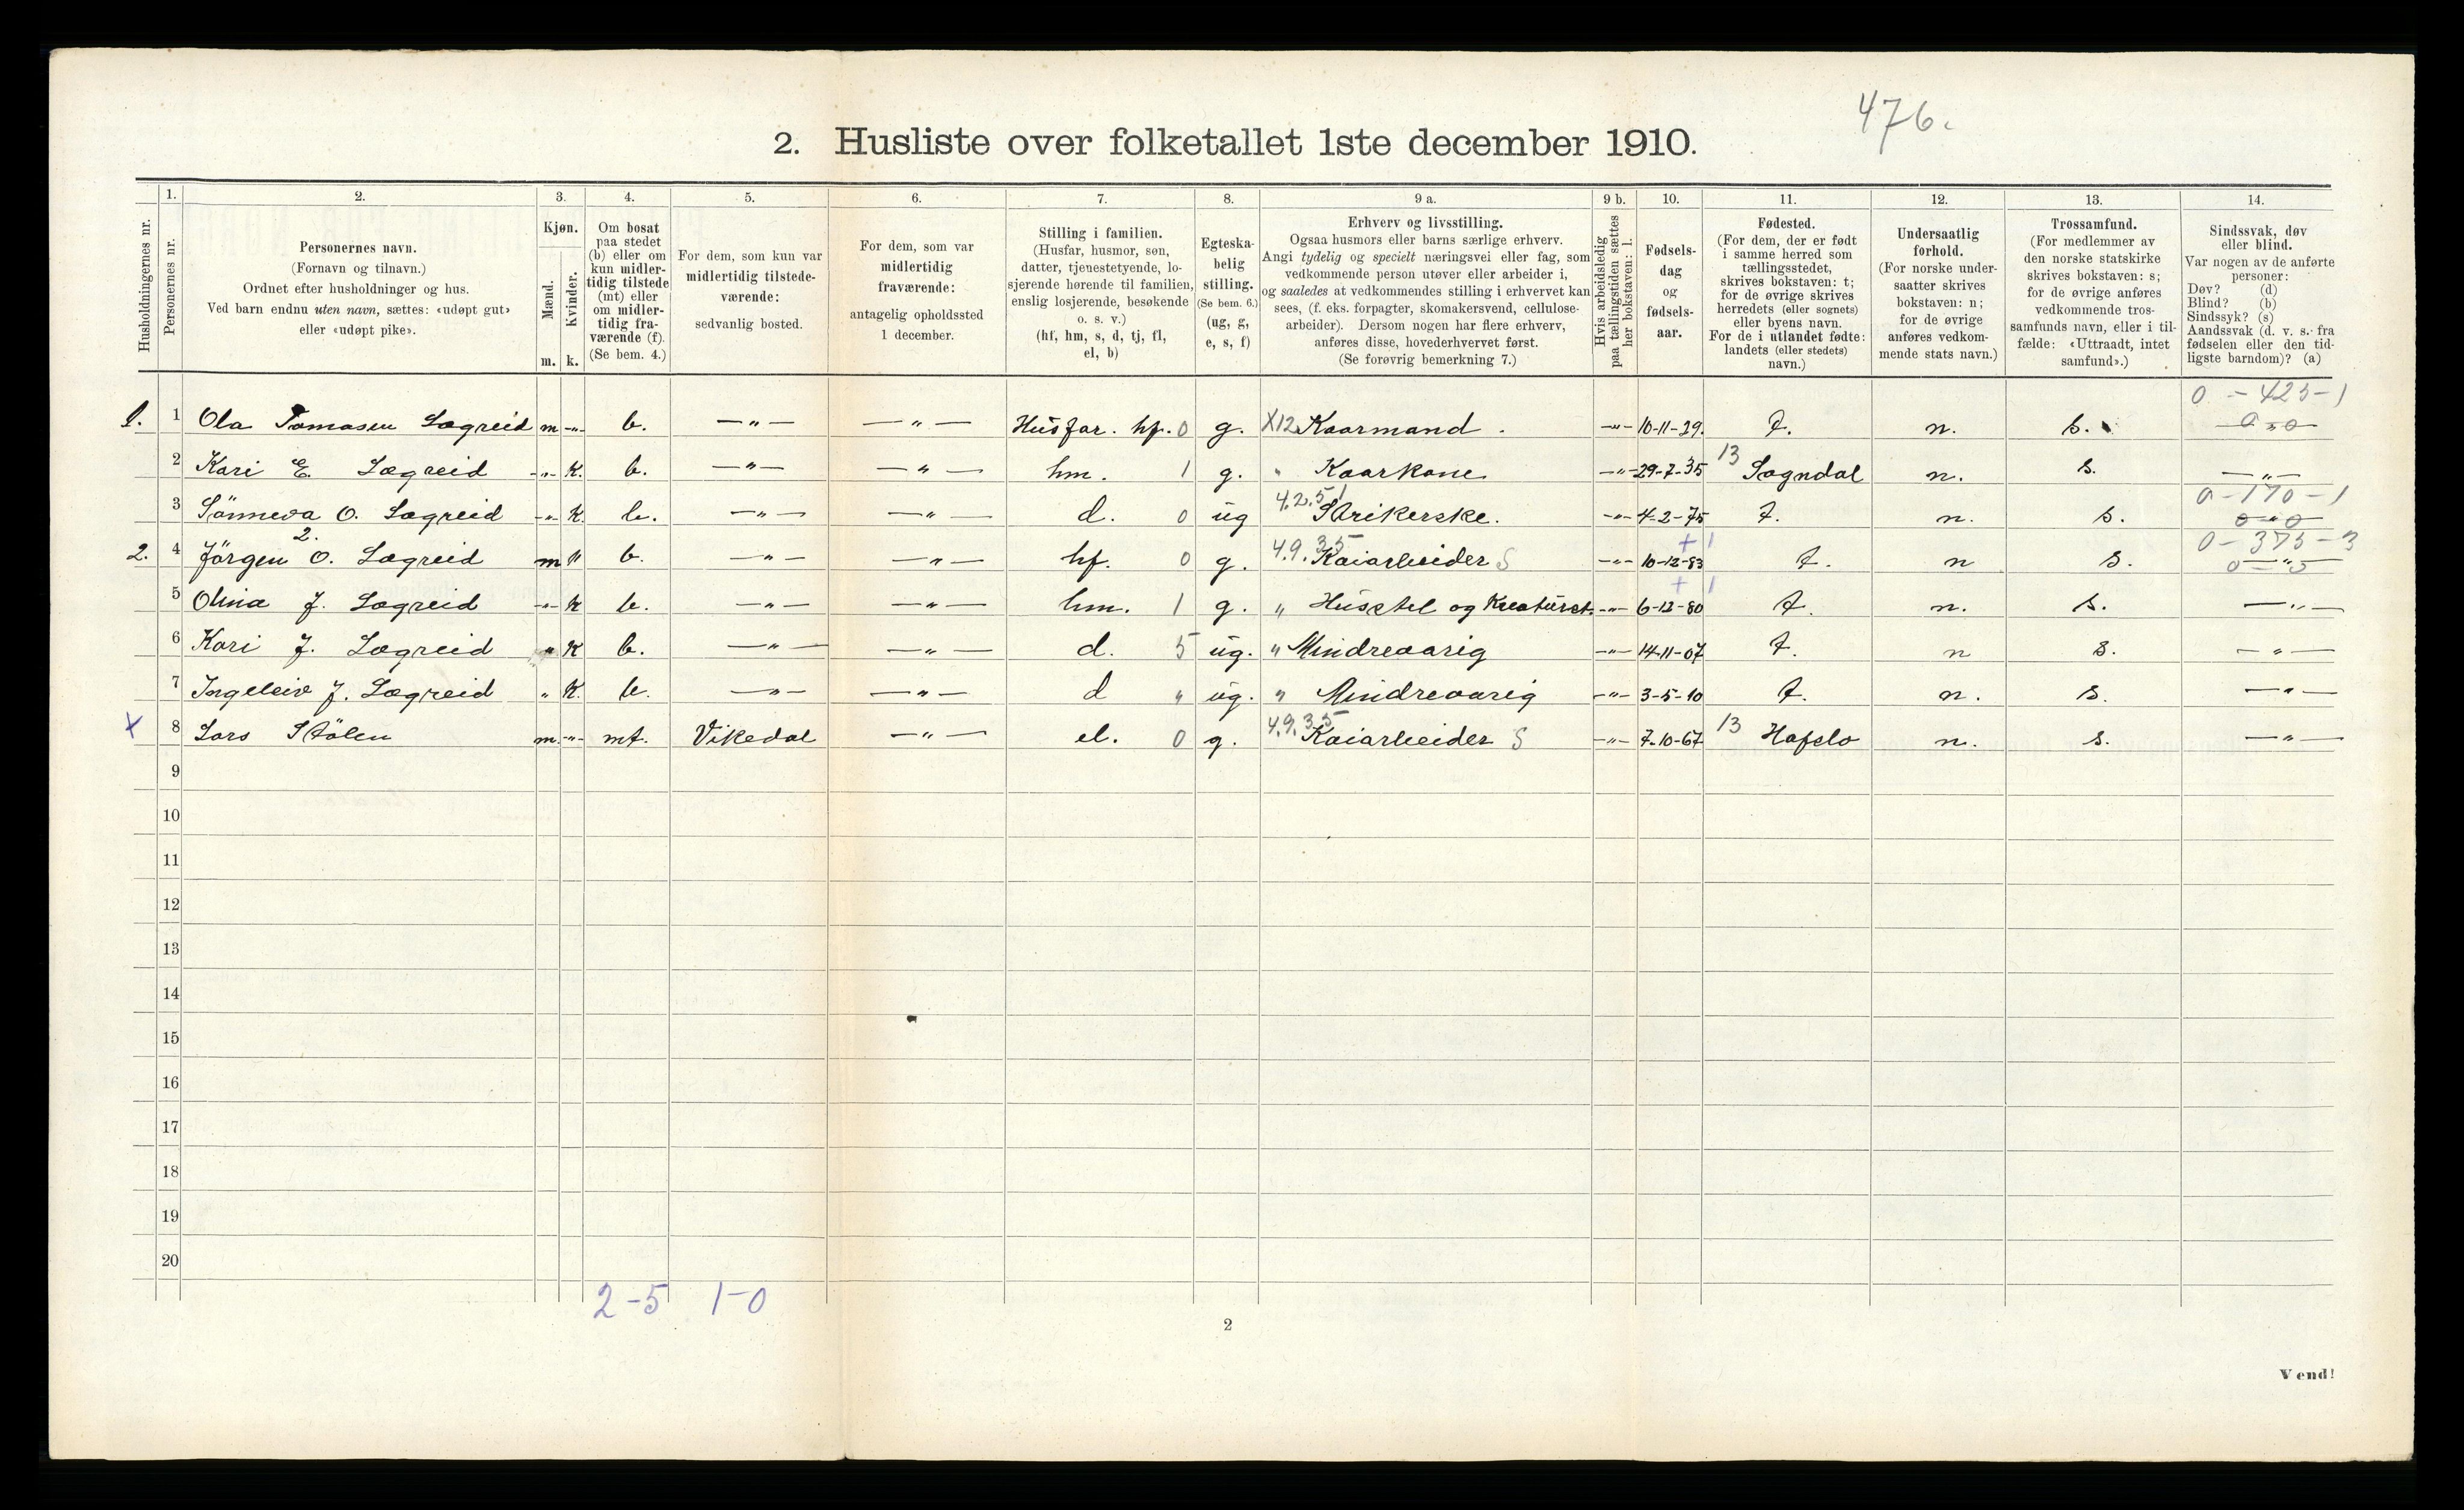 476.
2. Husliste over folketallet 1ste december 1910.
Husholdningernes nr.
1. Personernes nr.
2. Personernes navn.
(Fornavn og tilnavn.)
Ordnet efter husholdninger og hus.
Ved barn endnu uten navn, sættes: «udøpt gut»
eller «udøpt pike».
3. Kjøn.
Mænd. m.
Kvinder. k.
4. Om bosat
paa stedet
(b) eller om
kun midler-
tidig tilstede
(mt) eller
om midler-
tidig fra-
værende (f).
(Se bem. 4.)
5. For dem, som kun var
midlertidig tilstede-
værende:
sedvanlig bosted.
6. For dem, som var
midlertidig
fraværende:
antagelig opholdssted
1 december.
7. Stilling i familien.
(Husfar, husmor, søn,
datter, tjenestetyende, lo-
sjerende hørende til familien,
enslig losjerende, besøkende
o. s. v.)
(hf, hm, s, d, tj, fl,
el, b)
8. Egteska-
belig
stilling.
(Se bem. 6.)
(ug, g,
e, s, f)
9 a. Erhverv og livsstilling.
Ogsaa husmors eller barns særlige erhverv.
Angi tydelig og specielt næringsvei eller fag, som
vedkommende person utøver eller arbeider i,
og saaledes at vedkommendes stilling i erhvervet kan
sees, (f. eks. forpagter, skomakersvend, cellulose-
arbeider). Dersom nogen har flere erhverv,
anføres disse, hovederhvervet først.
(Se forøvrig bemerkning 7.)
9 b. Hvis arbeidsledig
paa tællingstiden sættes
her bokstaven: l.
10. Fødsels-
dag
og
fødsels-
aar.
11. Fødested.
(For dem, der er født
i samme herred som
tællingsstedet,
skrives bokstaven: t;
for de øvrige skrives
herredets (eller sognets)
eller byens navn.
For de i utlandet fødte:
landets (eller stedets)
navn.)
12. Undersaatlig
forhold.
(For norske under-
saatter skrives
bokstaven: n;
for de øvrige
anføres vedkom-
mende stats navn.)
13. Trossamfund.
(For medlemmer av
den norske statskirke
skrives bokstaven: s;
for de øvrige anføres
vedkommende tros-
samfunds navn, eller i til-
fælde: «Uttraadt, intet
samfund».)
14. Sindssvak, døv
eller blind.
Var nogen av de anførte
personer:
Døv? (d)
Blind? (b)
Sindssyk? (s)
Aandssvak (d. v. s. fra
fødselen eller den tid-
ligste barndom)? (a)
0 - 425 - 1
1. 1 Ola Tomasen Lægreid m -"- b. -"- -"- Husfar. hf. 0 g. X12 Kaarmand. -"- 10-11-29. t. n. s.
2 Kari E. Lægreid -"- K. b. -"- -"- hm. 1 g. " Kaarkone -"- 29-7-35 13 Sogndal n. s. -"-
0 - 170 - 1
3 Sönneva O. Lægreid -"- K. b. -"- -"- d. 0 ug 4.2.51 Strikerske. -"- 4-2-75 t. n. s.
2. + 1 0 - 375 - 3
2. 4 Jörgen O. Lægreid m " b. -"- -"- hf. 0 g. 4.9.35 Kaiarbeider S -"- 10-12-83 t. n s.
+ 1
5 Olina J. Lægreid -"- K b. -"- -"- hm. 1 g. " Husstel og Kreaturst. -"- 6-12-80 t. n. s. -"-
6 Kari J. Lægreid " K b. -"- -"- d. 5 ug. " Mindreaarig -"- 14-11-07 t. n s. -"-
7 Ingeleiv J. Lægreid " K. b. -"- -"- d " ug. " Mindreaarig -"- 3-5-10 t. n. s. -"-
x 8 Lars Stölen m. -"- mt. Vikedal -"- el. 0 g. 4.9.35 Kaiarbeider S -"- 7-10-67 13 Hafslo n. s. -"-
9
10
11
12
13
14
15
16
17
18
19
20
2-5 1-0
2
Vend!